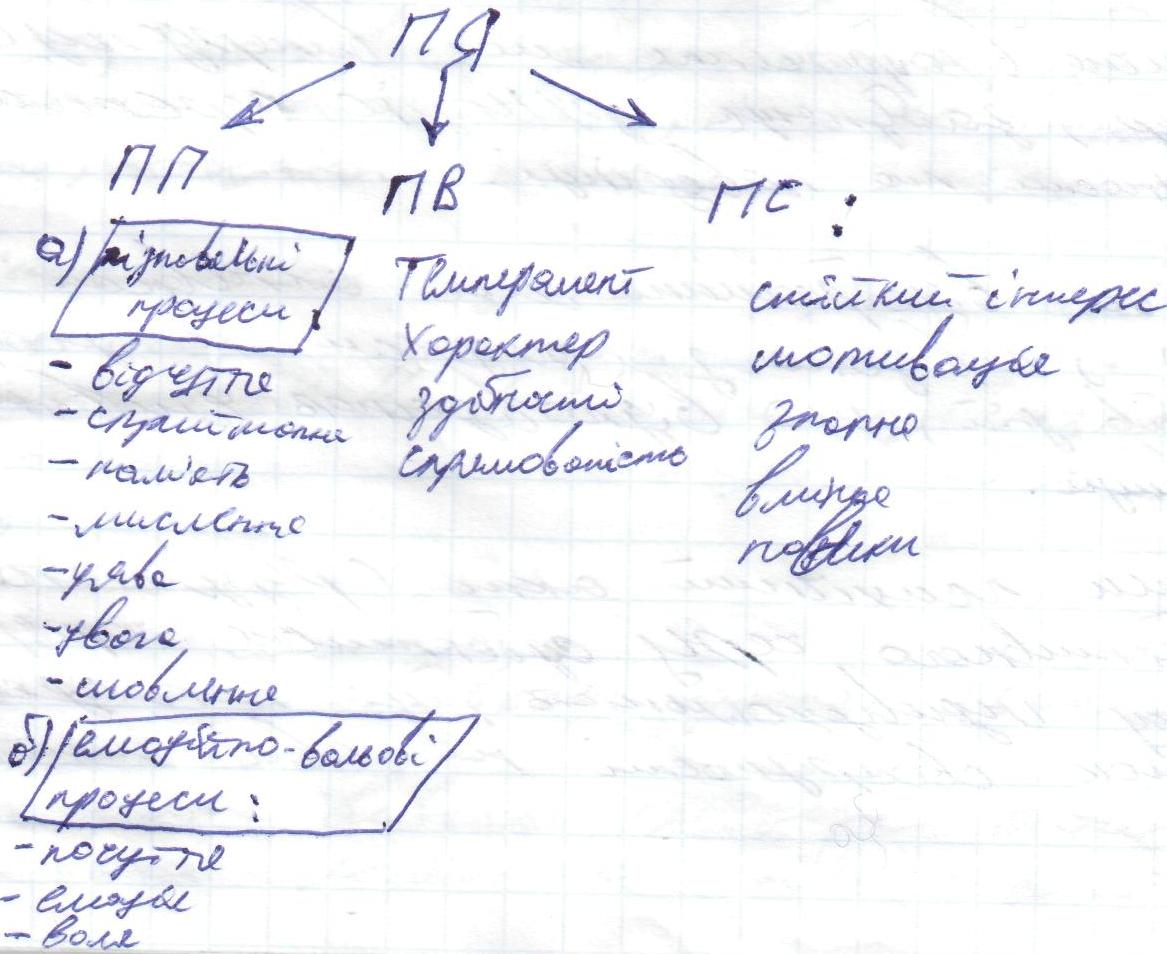 ПЯ
ПП
а) пізнавальні
процеси:
- відчуття
- сприймання
- пам'ять
- мислення
- уява
- увага
- мовлення
б) емоційно-вольові
процеси:
- почуття
- емоція
- воля
ПВ
Темперамент
Характер
здібності
спрямованість
ПС:
стійкий інтерес
мотивація
знання
вміння
навики